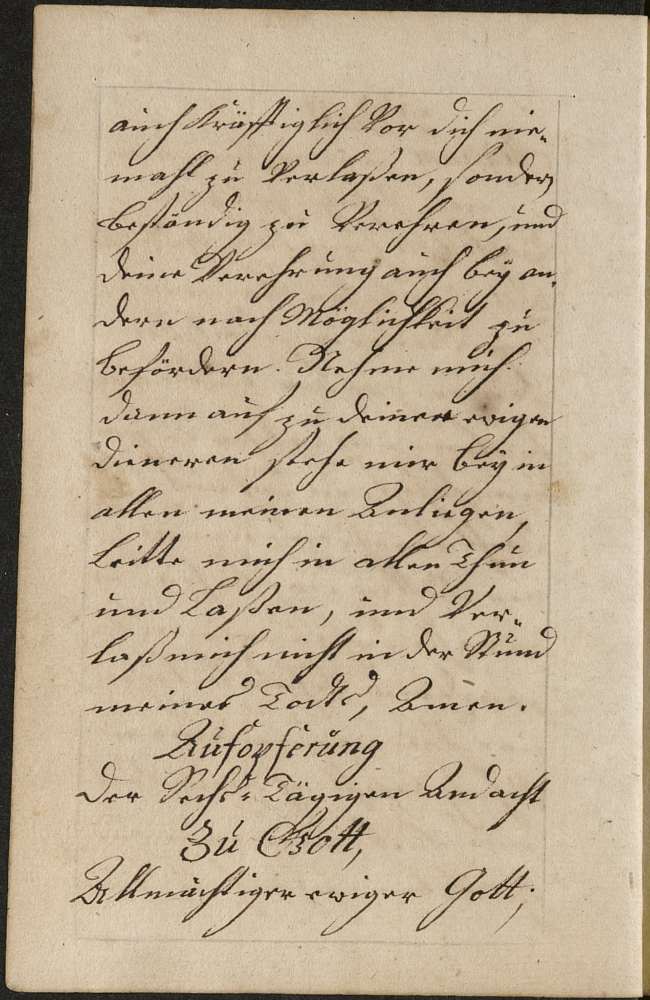 auch kräfftiglich Vor dich nie-
mahl zu Verlaßen, sondern
beständig zu Verehren, und
deine Verehrung auch bey an-
dern nach Möglichkeit zu
befördern. Nehme mich
dann auf zu deinen ewigen
dieneren stehe mir bey in
allen meinen Anliegen,
leitte mich in allen Thun
und Laßen, und Ver-
laß mich nicht in der Stund
meines Todts, Amen.
Aufopferung
der Sechs-Tägigen Andacht
Zu Gott,
Allmächtiger ewiger Gott;